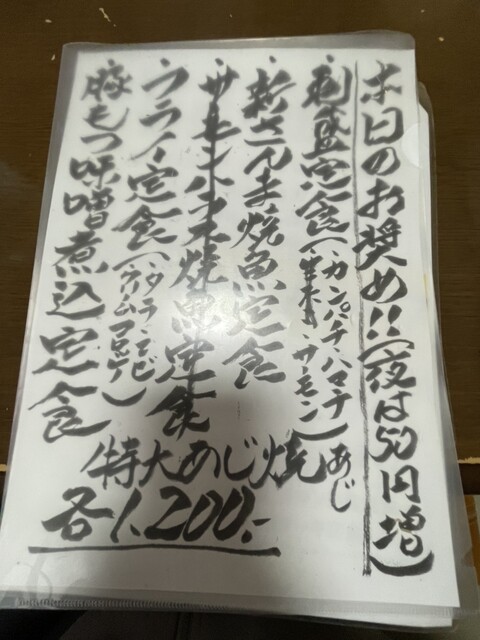 本日のお奨め!!(夜は50円増)
・刺盛定食(カンパチ・ハマチ
生本・サーモン)あじ
・新さんま焼魚定食
・サーモンハラス焼魚定食
・フライ定食(タラ・エビ
クリームコロッケ)
・豚もつ味噌煮込定食
特大あじ焼
各1.200.-